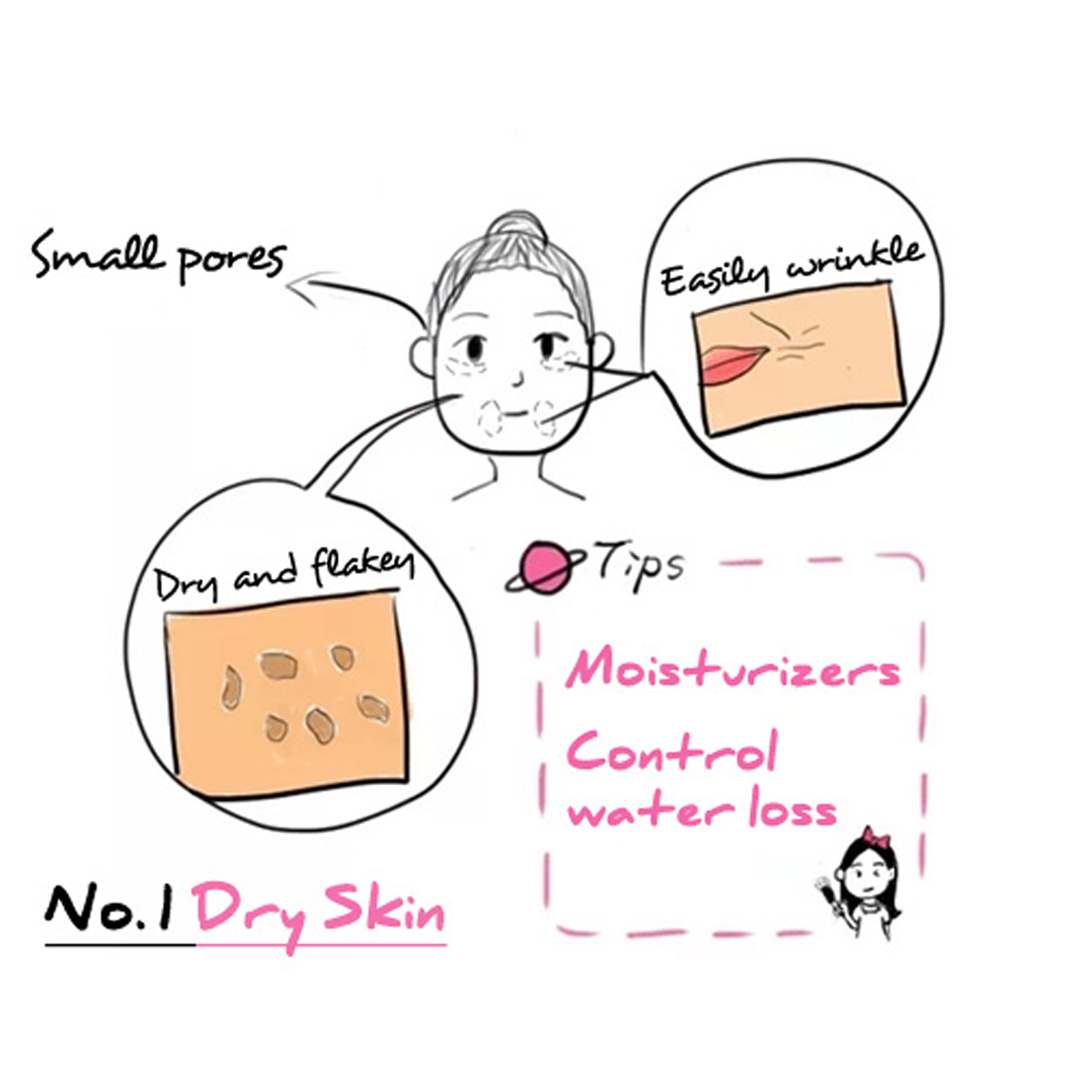 Small pores
Easily wrinkle
Dry and flakey
Tips
Moisturizers
Control
water loss
No.1 Dry Skin